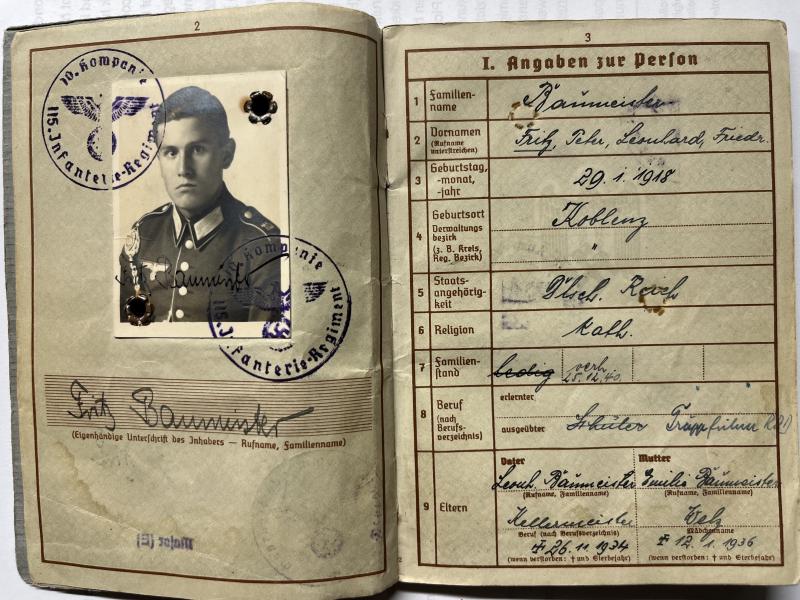 2
10. Kompanie
115. Infanterie-Regiment
Fritz Baumeister
10. Kompanie
115. Infanterie-Regiment
Fritz Baumeister
(Eigenhändige Unterschrift des Inhabers — Rufname, Familienname)
Major (E)
3
I. Angaben zur Person
1 Familienname Baumeister
2 Vornamen (Rufname unterstreichen) Fritz, Peter, Leonhard, Friedr.
3 Geburtstag, -monat, -jahr 29. 1. 1918
4 Geburtsort Koblenz
Verwaltungsbezirk (z. B. Kreis, Reg. Bezirk) "
5 Staatsangehörigkeit Dtsch. Reich
6 Religion kath.
7 Familienstand ledig verh. 25.12.40.
8 Beruf (nach Berufsverzeichnis) erlernter
ausgeübter Schüler Truppführer RAD
9 Eltern
Vater Mutter
Leonh. Baumeister Emilie Baumeister
(Rufname, Familienname) (Rufname, Familienname)
Kellermeister Welz
Beruf (nach Berufsverzeichnis) Mädchenname
26. 11. 1934 12. 1. 1936
(wenn verstorben: † und Sterbejahr) (wenn verstorben: † und Sterbejahr)
2